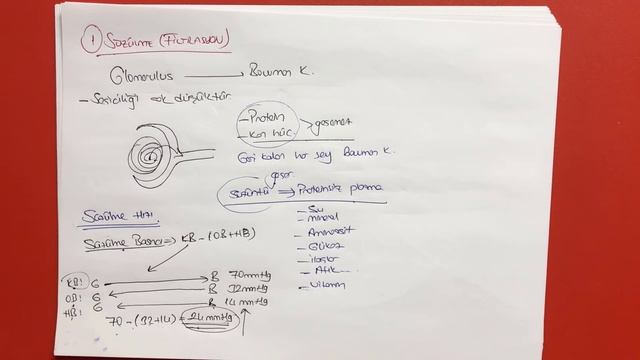 1 SÜZÜLME (FİLTRASYON)
Glomerulus → Bowman K.
- Seçiciliği çok düşüktür.
- Protein
- Kan hüc. > geçemez
Geri kalan her şey Bowman K.
geçer.
Süzüntü ⇒ Proteinsiz plazma
- Su
- mineral
- Aminoasit
- Glikoz
- ilaçlar
- Atık
- Vitamin
Süzülme Hızı
Süzülme Basıncı ⇒ KB - (OB+HB)
KB: G → B 70mmHg
OB: G ← B 32mmHg
HB: G ← B 14mmHg
70 - (32+14) = 24mmHg